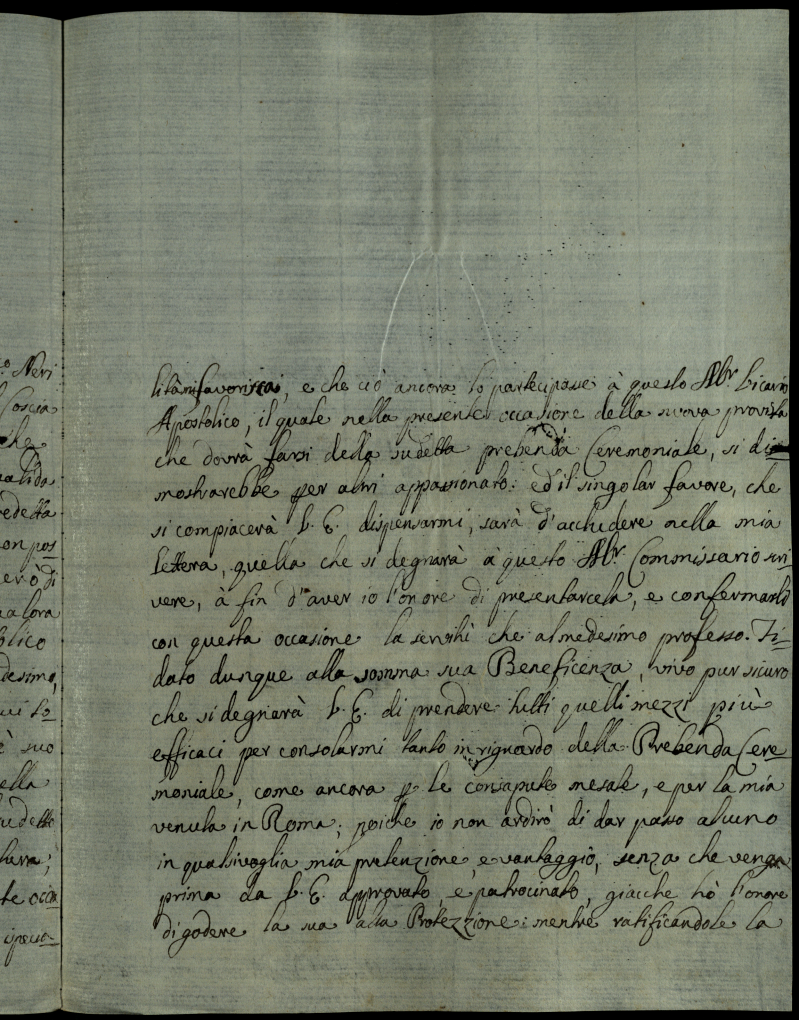 .o Neri
Coscia
che
valida
edetta
on pos
erò di
alora
blico
desimo,
è suo
ella
udette
te occa
lità mi favorisca, e che ciò ancora lo partecipasse à questo Vicario
Apostolico, il quale nella presente occasione della nuova provista
che dovrà farsi della sudetta prebenda Ceremoniale, si di
mostrarebbe per altri appassionato: ed il singolar favore, che
si compiacerà V. E. dispensarmi, sarà d'acchiudere nella mia
lettera, quella che si degnarà à questo Commissario scri
vere, à fin d'aver io l'onore di presentarcela, e confermarli
con questa occasione la servitù che al medesimo professo. Fi
dato dunque alla somma sua Beneficenza, vivo pur sicuro
che si degnarà V. E. di prendere tutti quelli mezzi più
efficaci per consolarmi tanto in riguardo della Prebenda Cere
moniale, come ancora p le consapute mesate, e per la mia
venuta in Roma; poiche io non ardirò di dar passo alcuno
in qualsivoglia mia pretenzione, e vantaggio, senza che venga
prima da V. E. approvato, e patrocinato, giacche hò l'onore
di godere la sua alta Protezzione: mentre ratificandole la